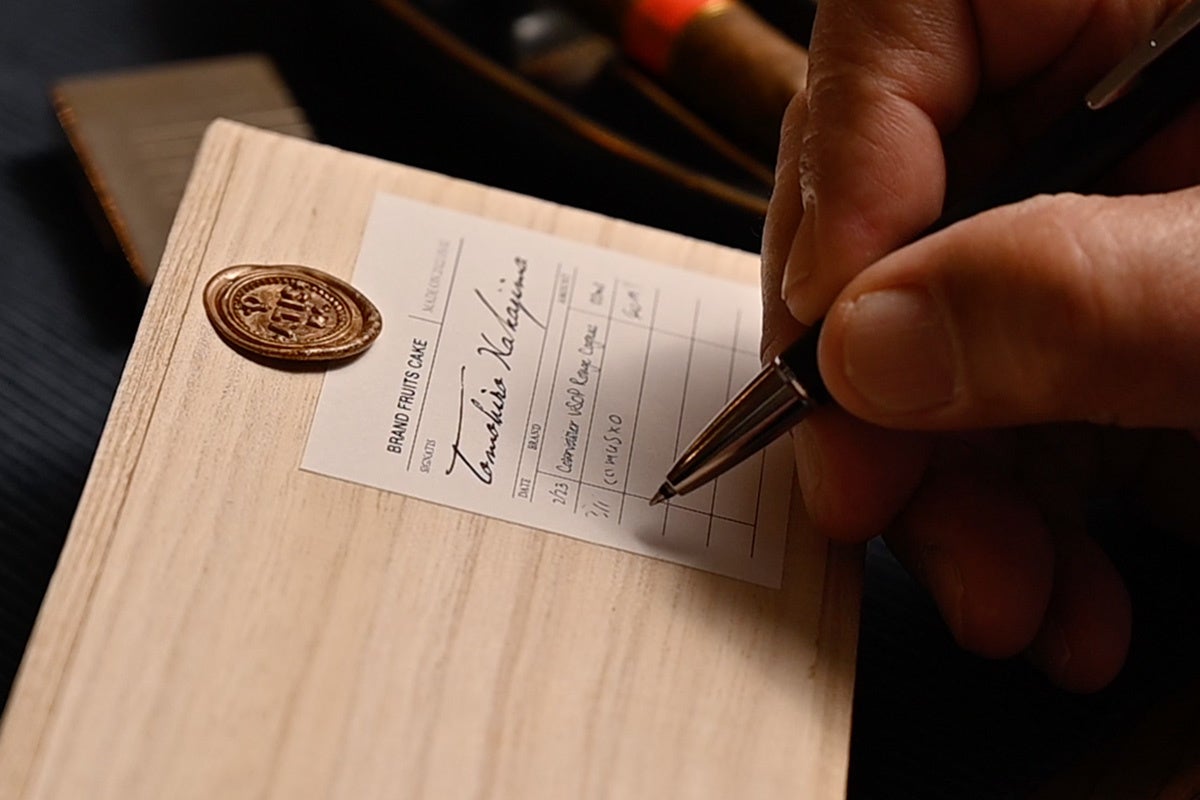 BRAND FRUITS CAKE
SIGNATIS
Tomohiro Nakajima
DATE BRAND AMOUNT
2/23 Courvoisier VSOP Rouge Cognac
camus XO